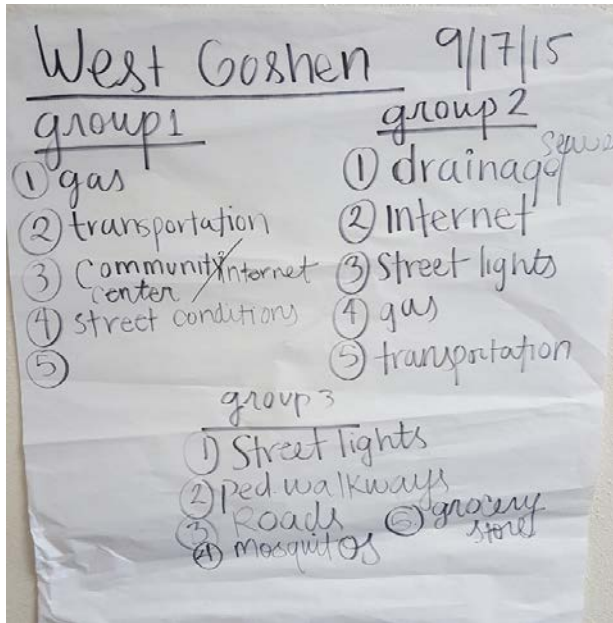 West Goshen 9/17/15
group 1
① gas
② transportation
③ Community/internet
center
④ street conditions
⑤
group 2
① drainage/
② Internet
③ Street lights
④ gas
⑤ transportation
group 3
① Street lights
② ped. walkways
③ Roads
④ mosquitos
⑤ grocery
store